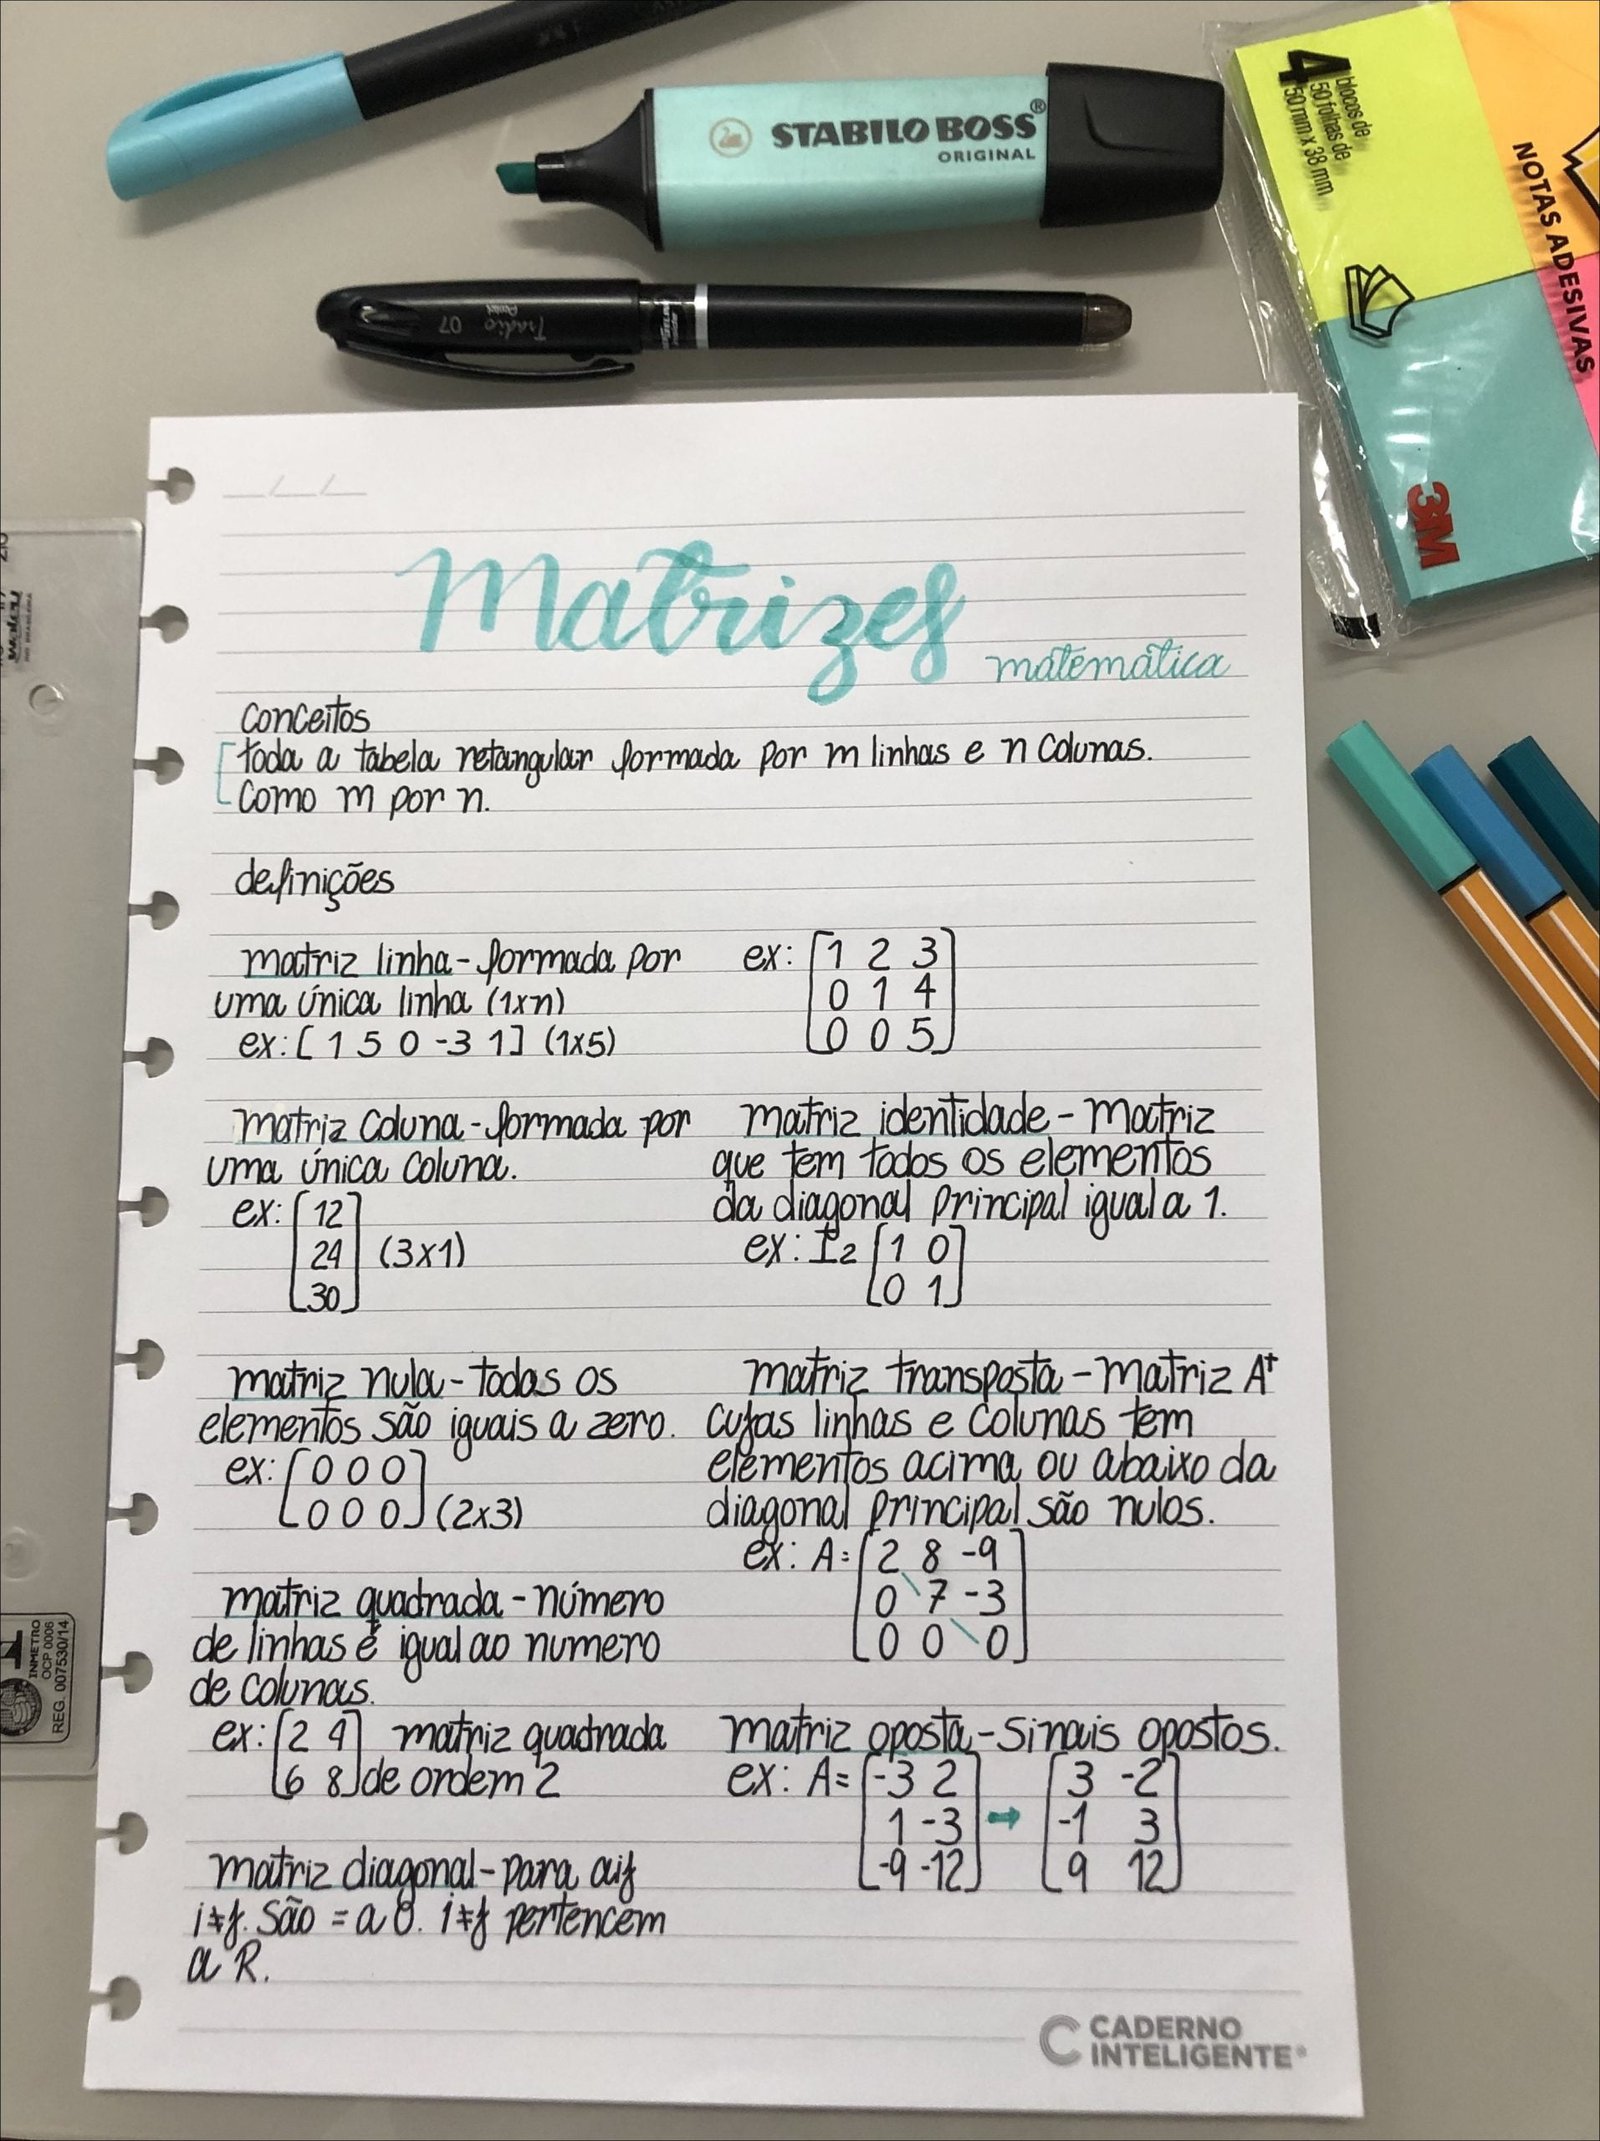 STABILO BOSS®
ORIGINAL
4 blocos de
50 folhas de
50 mm x 38 mm
NOTAS ADESIVAS
3M
Tradio 07
Pentel
Matrizes
matemática
conceitos
toda a tabela retangular formada por m linhas e n colunas.
como m por n.
definições
matriz linha - formada por
uma única linha (1xn)
ex: [ 1 5 0 -3 1 ] (1x5)
matriz coluna - formada por
uma única coluna.
ex: [12
24 (3x1)
30]
matriz nula - todos os
elementos são iguais a zero.
ex: [0 0 0
0 0 0] (2x3)
matriz quadrada - número
de linhas é igual ao numero
de colunas.
ex: [2 4] matriz quadrada
[6 8] de ordem 2
matriz diagonal - para aij
i≠j. São = a 0. i≠j pertencem
a R.
ex: [1 2 3
0 1 4
0 0 5]
matriz identidade - Matriz
que tem todos os elementos
da diagonal principal igual a 1.
ex: I2 [1 0
0 1]
matriz transposta - Matriz At
cujas linhas e colunas tem
elementos acima ou abaixo da
diagonal principal são nulos.
ex: A= [2 8 -9
0 7 -3
0 0 0]
matriz oposta - Sinais opostos.
ex: A= [-3 2 [3 -2
1 -3 → -1 3
-9 -12] 9 12]
CADERNO
INTELIGENTE®
INMETRO
OCP 0006
REG. 007530/14